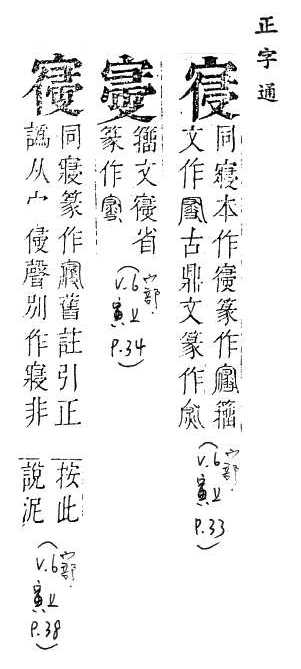 正字通
寑
同寢本作篆作籀
文作古鼎文篆作
(V.6 宀部 寅上 P.33)
籀文省
篆作
(V.6 宀部 寅上 P.34)
同寢篆作舊註引正
譌从宀侵聲別作寢非
按此
說泥
(V.6 宀部 寅上 P.38)